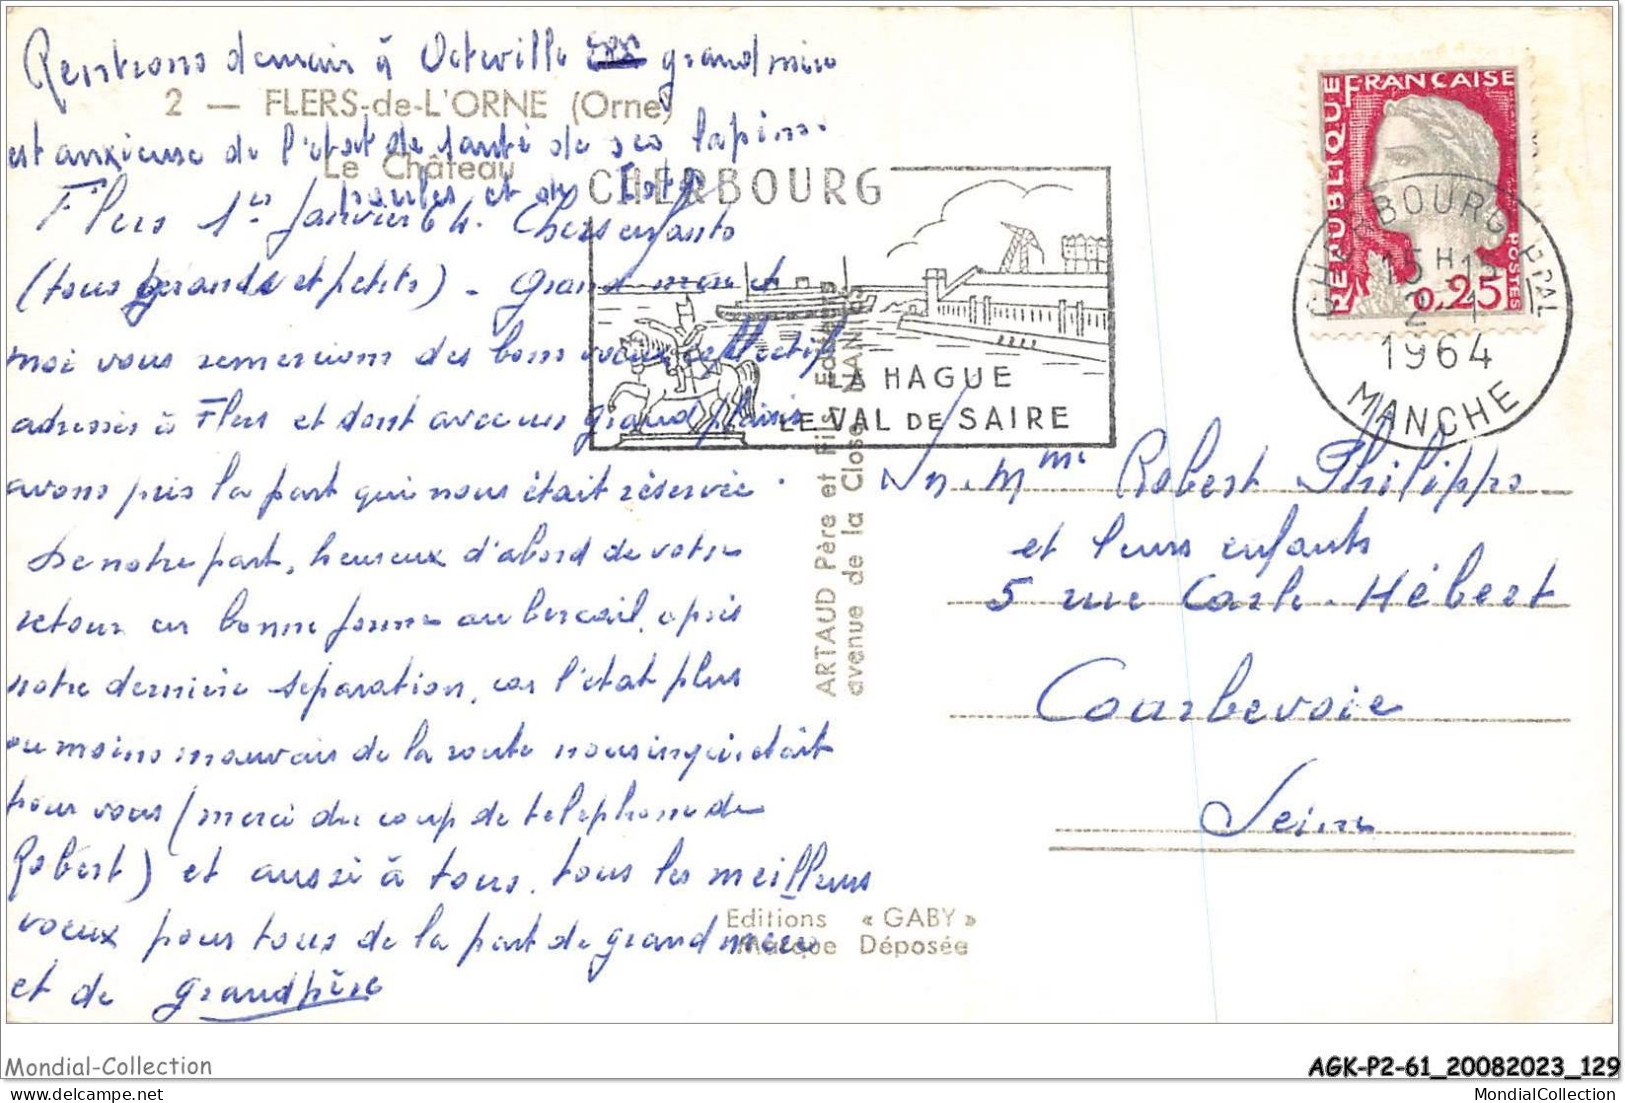 Rentrons demain à Octeville grand mère
2 — FLERS-de-L'ORNE (Orne)
est anxieuse de l'état de santé de ses lapins
Le Château
poules et de
Flers 1er Janvier 64. Chers enfants
(tous grands et petits) - Grand mère et
moi vous remercions des bons voeux collectifs
adressés à Flers et dont avec un grand plaisir
avons pris la part qui nous était réservée.
De notre part, heureux d'abord de votre
retour en bonne forme au bercail, après
notre dernière séparation, car l'état plus
ou moins mauvais de la route nous inquiétait
pour vous (merci du coup de téléphone de
Robert) et aussi à tous, tous les meilleurs
voeux pour tous de la part de grand mère
et de grandpère
CHERBOURG
LA HAGUE
LE VAL DE SAIRE
ARTAUD Père et Fils Editeurs
avenue de la Close NANTES
Editions « GABY »
Marque Déposée
REPUBLIQUE FRANÇAISE
POSTES
0,25
CHERBOURG PPAL
15 H 15
2 - 1
1964
MANCHE
Mme Robert Philippe
et leurs enfants
5 rue Carle-Hébert
Courbevoie
Seine
Mondial-Collection
AGK-P2-61_20082023_129
MondialCollection